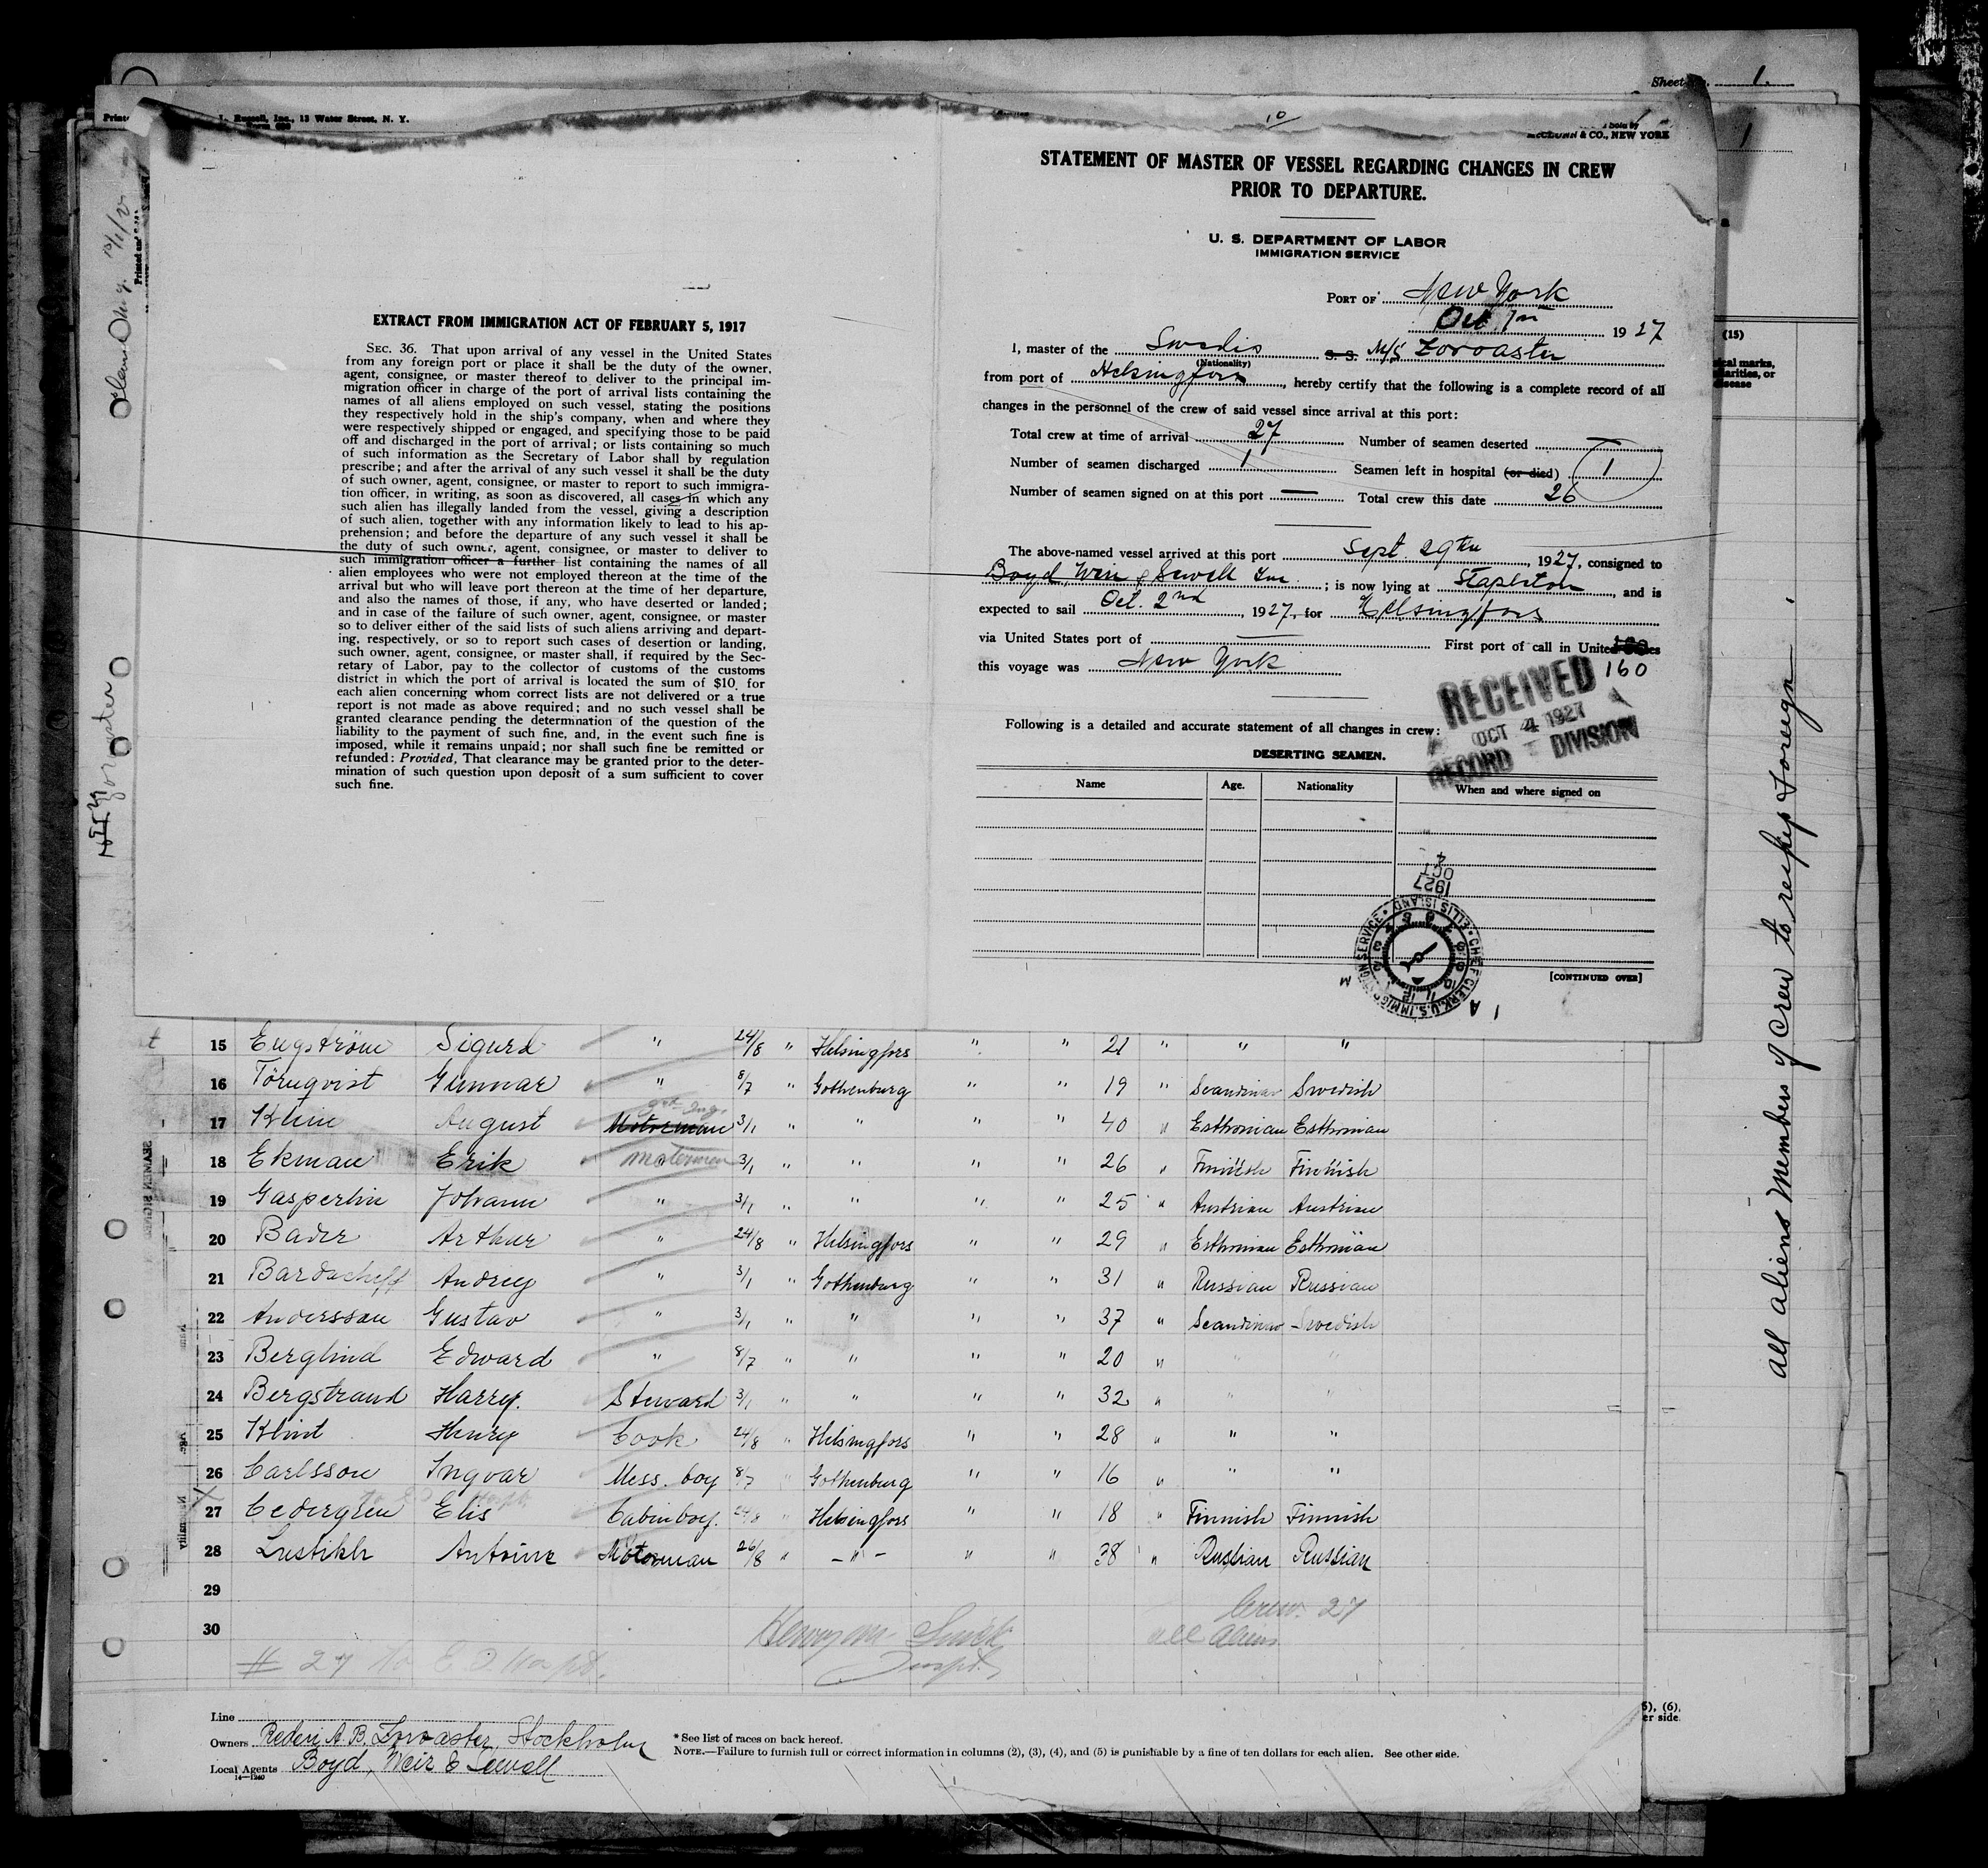 Sheet No. 1.
I. Russell, Inc., 13 Water Street, N. Y.
10
& CO., NEW YORK
1
STATEMENT OF MASTER OF VESSEL REGARDING CHANGES IN CREW
PRIOR TO DEPARTURE.
U. S. DEPARTMENT OF LABOR
IMMIGRATION SERVICE
PORT OF New York
Oct 1st 1927
I, master of the Swedis S. S. M/S Zoroaster
(Nationality)
from port of Helsingfors, hereby certify that the following is a complete record of all
changes in the personnel of the crew of said vessel since arrival at this port:
Total crew at time of arrival 27 Number of seamen deserted —
Number of seamen discharged 1 Seamen left in hospital (or died) 1
Number of seamen signed on at this port — Total crew this date 26
The above-named vessel arrived at this port Sept. 29th, 1927, consigned to
Boyd, Weir & Sewell Inc.; is now lying at Stapleton, and is
expected to sail Oct. 2nd, 1927, for Helsingfors
via United States port of — First port of call in United States
this voyage was New York
160
RECEIVED
OCT 4 1927
RECORD DIVISION
Following is a detailed and accurate statement of all changes in crew:
DESERTING SEAMEN.
Name Age. Nationality When and where signed on
1927
OCT
4
CHIEF CLERK, U.S. IMMIGRATION SERVICE • ELLIS ISLAND •
[CONTINUED OVER]
EXTRACT FROM IMMIGRATION ACT OF FEBRUARY 5, 1917
SEC. 36. That upon arrival of any vessel in the United States
from any foreign port or place it shall be the duty of the owner,
agent, consignee, or master thereof to deliver to the principal im-
migration officer in charge of the port of arrival lists containing the
names of all aliens employed on such vessel, stating the positions
they respectively hold in the ship's company, when and where they
were respectively shipped or engaged, and specifying those to be paid
off and discharged in the port of arrival; or lists containing so much
of such information as the Secretary of Labor shall by regulation
prescribe; and after the arrival of any such vessel it shall be the duty
of such owner, agent, consignee, or master to report to such immigra-
tion officer, in writing, as soon as discovered, all cases in which any
such alien has illegally landed from the vessel, giving a description
of such alien, together with any information likely to lead to his ap-
prehension; and before the departure of any such vessel it shall be
the duty of such owner, agent, consignee, or master to deliver to
such immigration officer a further list containing the names of all
alien employees who were not employed thereon at the time of the
arrival but who will leave port thereon at the time of her departure,
and also the names of those, if any, who have deserted or landed;
and in case of the failure of such owner, agent, consignee, or master
so to deliver either of the said lists of such aliens arriving and depart-
ing, respectively, or so to report such cases of desertion or landing,
such owner, agent, consignee, or master shall, if required by the Sec-
retary of Labor, pay to the collector of customs of the customs
district in which the port of arrival is located the sum of $10 for
each alien concerning whom correct lists are not delivered or a true
report is not made as above required; and no such vessel shall be
granted clearance pending the determination of the question of the
liability to the payment of such fine, and, in the event such fine is
imposed, while it remains unpaid; nor shall such fine be remitted or
refunded: Provided, That clearance may be granted prior to the deter-
mination of such question upon deposit of a sum sufficient to cover
such fine.
(15)
Zoroaster
all aliens Members of crew to reship Foreign
15 Engström Sigurd " 24/8 " Helsingfors " " 21 " " "
16 Törnqvist Gunnar " 8/7 " Gothenburg " " 19 " Scandinav Swedish
17 Klein August Motorman 3/1 " " " " 40 " Esthonian Esthonian
18 Ekman Erik Motorman 3/1 " " " " 26 " Finnish Finnish
19 Gasperlin Johann " 3/1 " " " " 25 " Austrian Austrian
20 Bader Arthur " 24/8 " Helsingfors " " 29 " Esthonian Esthonian
21 Bardacheff Andrey " 3/1 " Gothenburg " " 31 " Russian Russian
22 Andersson Gustav " 3/1 " " " " 37 " Scandinav Swedish
23 Berglind Edward " 8/7 " " " " 20 " " "
24 Bergstrand Harry. Steward 3/1 " " " " 32 " " "
25 Klint Henry Cook 24/8 " Helsingfors " " 28 " " "
26 Carlsson Ingvar Mess. boy 8/7 " Gothenburg " " 16 " " "
27 Cedergren Elis Cabinboy. 24/8 " Helsingfors " " 18 " Finnish Finnish
28 Lustikh Antoine Motorman 26/8 " -"- " " 38 " Russian Russian
29
30
Crew. 27
all aliens
# 27 to E I Hospt.
Line
Owners Rederi A. B. Zoroaster, Stockholm
Local Agents Boyd, Weir & Sewell
14—1240
*See list of races on back hereof.
NOTE.—Failure to furnish full or correct information in columns (2), (3), (4), and (5) is punishable by a fine of ten dollars for each alien. See other side.